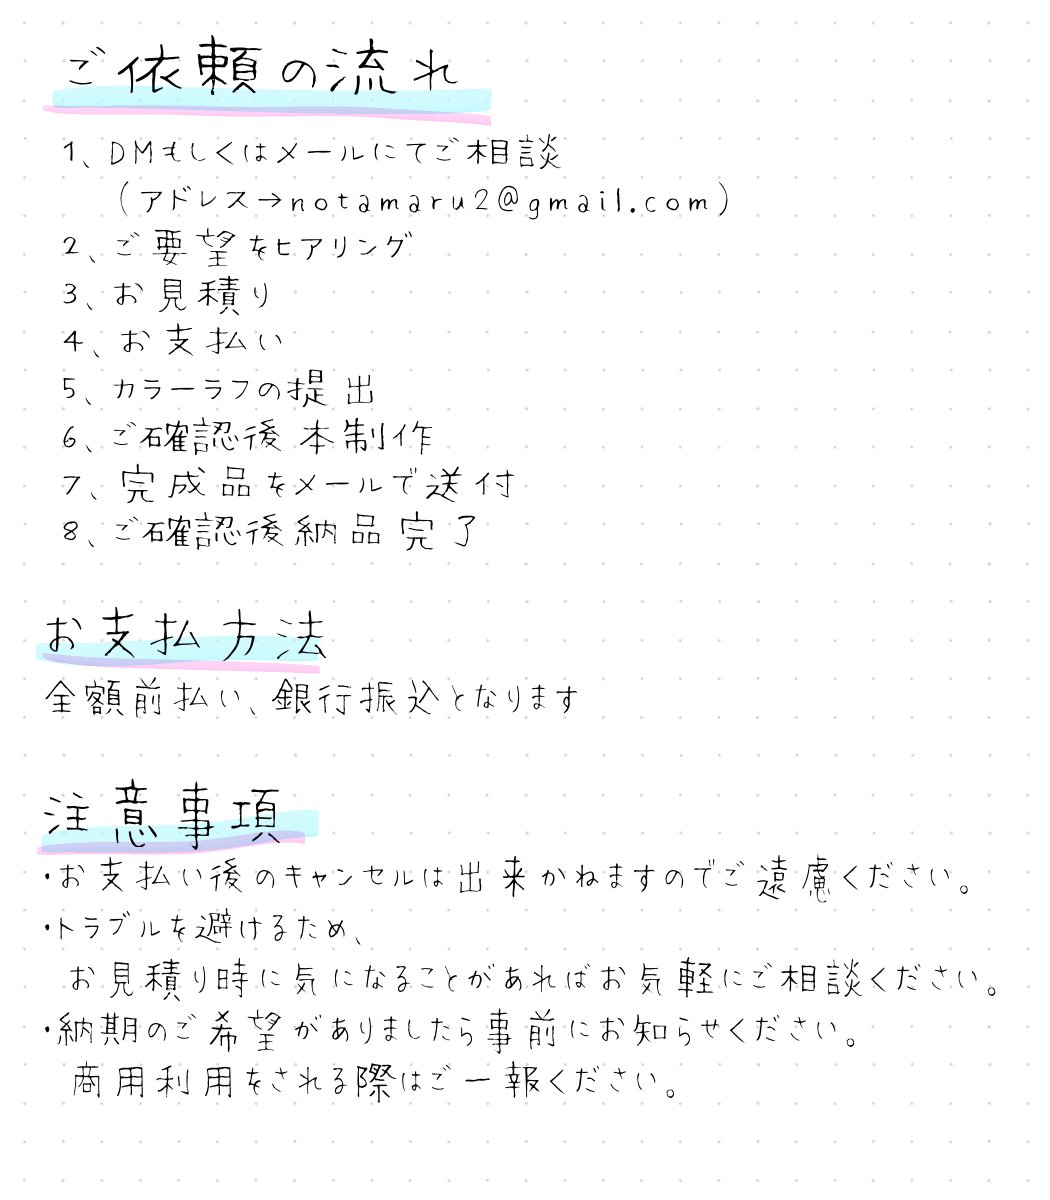 ご依頼の流れ
1、DMもしくはメールにてご相談
（アドレス→notamaru2@gmail.com）
2、ご要望をヒアリング
3、お見積り
4、お支払い
5、カラーラフの提出
6、ご確認後本制作
7、完成品をメールで送付
8、ご確認後納品完了
お支払方法
全額前払い、銀行振込となります
注意事項
・お支払い後のキャンセルは出来かねますのでご遠慮ください。
・トラブルを避けるため、
お見積り時に気になることがあればお気軽にご相談ください。
・納期のご希望がありましたら事前にお知らせください。
商用利用をされる際はご一報ください。